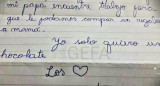 mi papá encuentre trabajo para
que le podamos comprar un regalo
a mamá.
Yo solo quiero un
chocolate
Los ♡